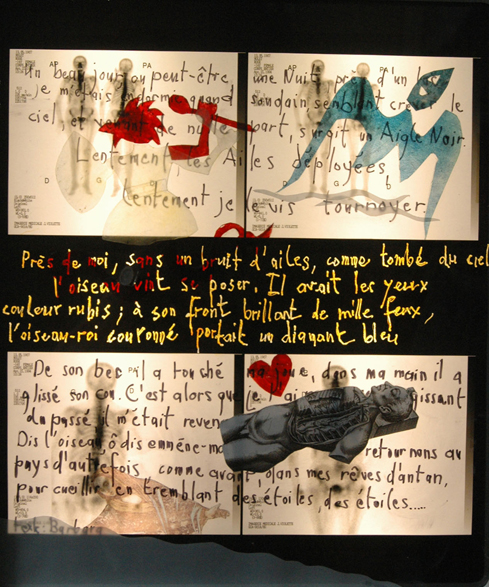 AP PA AP PA
Un beau jour, ou peut-être une Nuit près d'un
je m'étais endormi quand soudain semblant crever le
ciel, et venant de nulle part, surgit un Aigle Noir.
Lentement les Ailes déployées,
D G G D
Lentement je le vis tournoyer.
IMAGERIE MEDICALE L'OISELETTE
Près de moi, sans un bruit d'ailes, comme tombé du ciel
l'oiseau vint se poser. Il avait les yeux
couleur rubis; à son front brillant de mille feux,
l'oiseau-roi couronné portait un diamant bleu
De son bec il a touché ma joue, dans ma main il a
glissé son cou. C'est alors que je l'ai
du passé il m'était reven
Dis l'oiseau, ô dis emmène-mo retournons au
pays d'autrefois comme avant, dans mes rêves d'antan,
pour cueillir en tremblant des étoiles, des étoiles.....
texte: Barbara